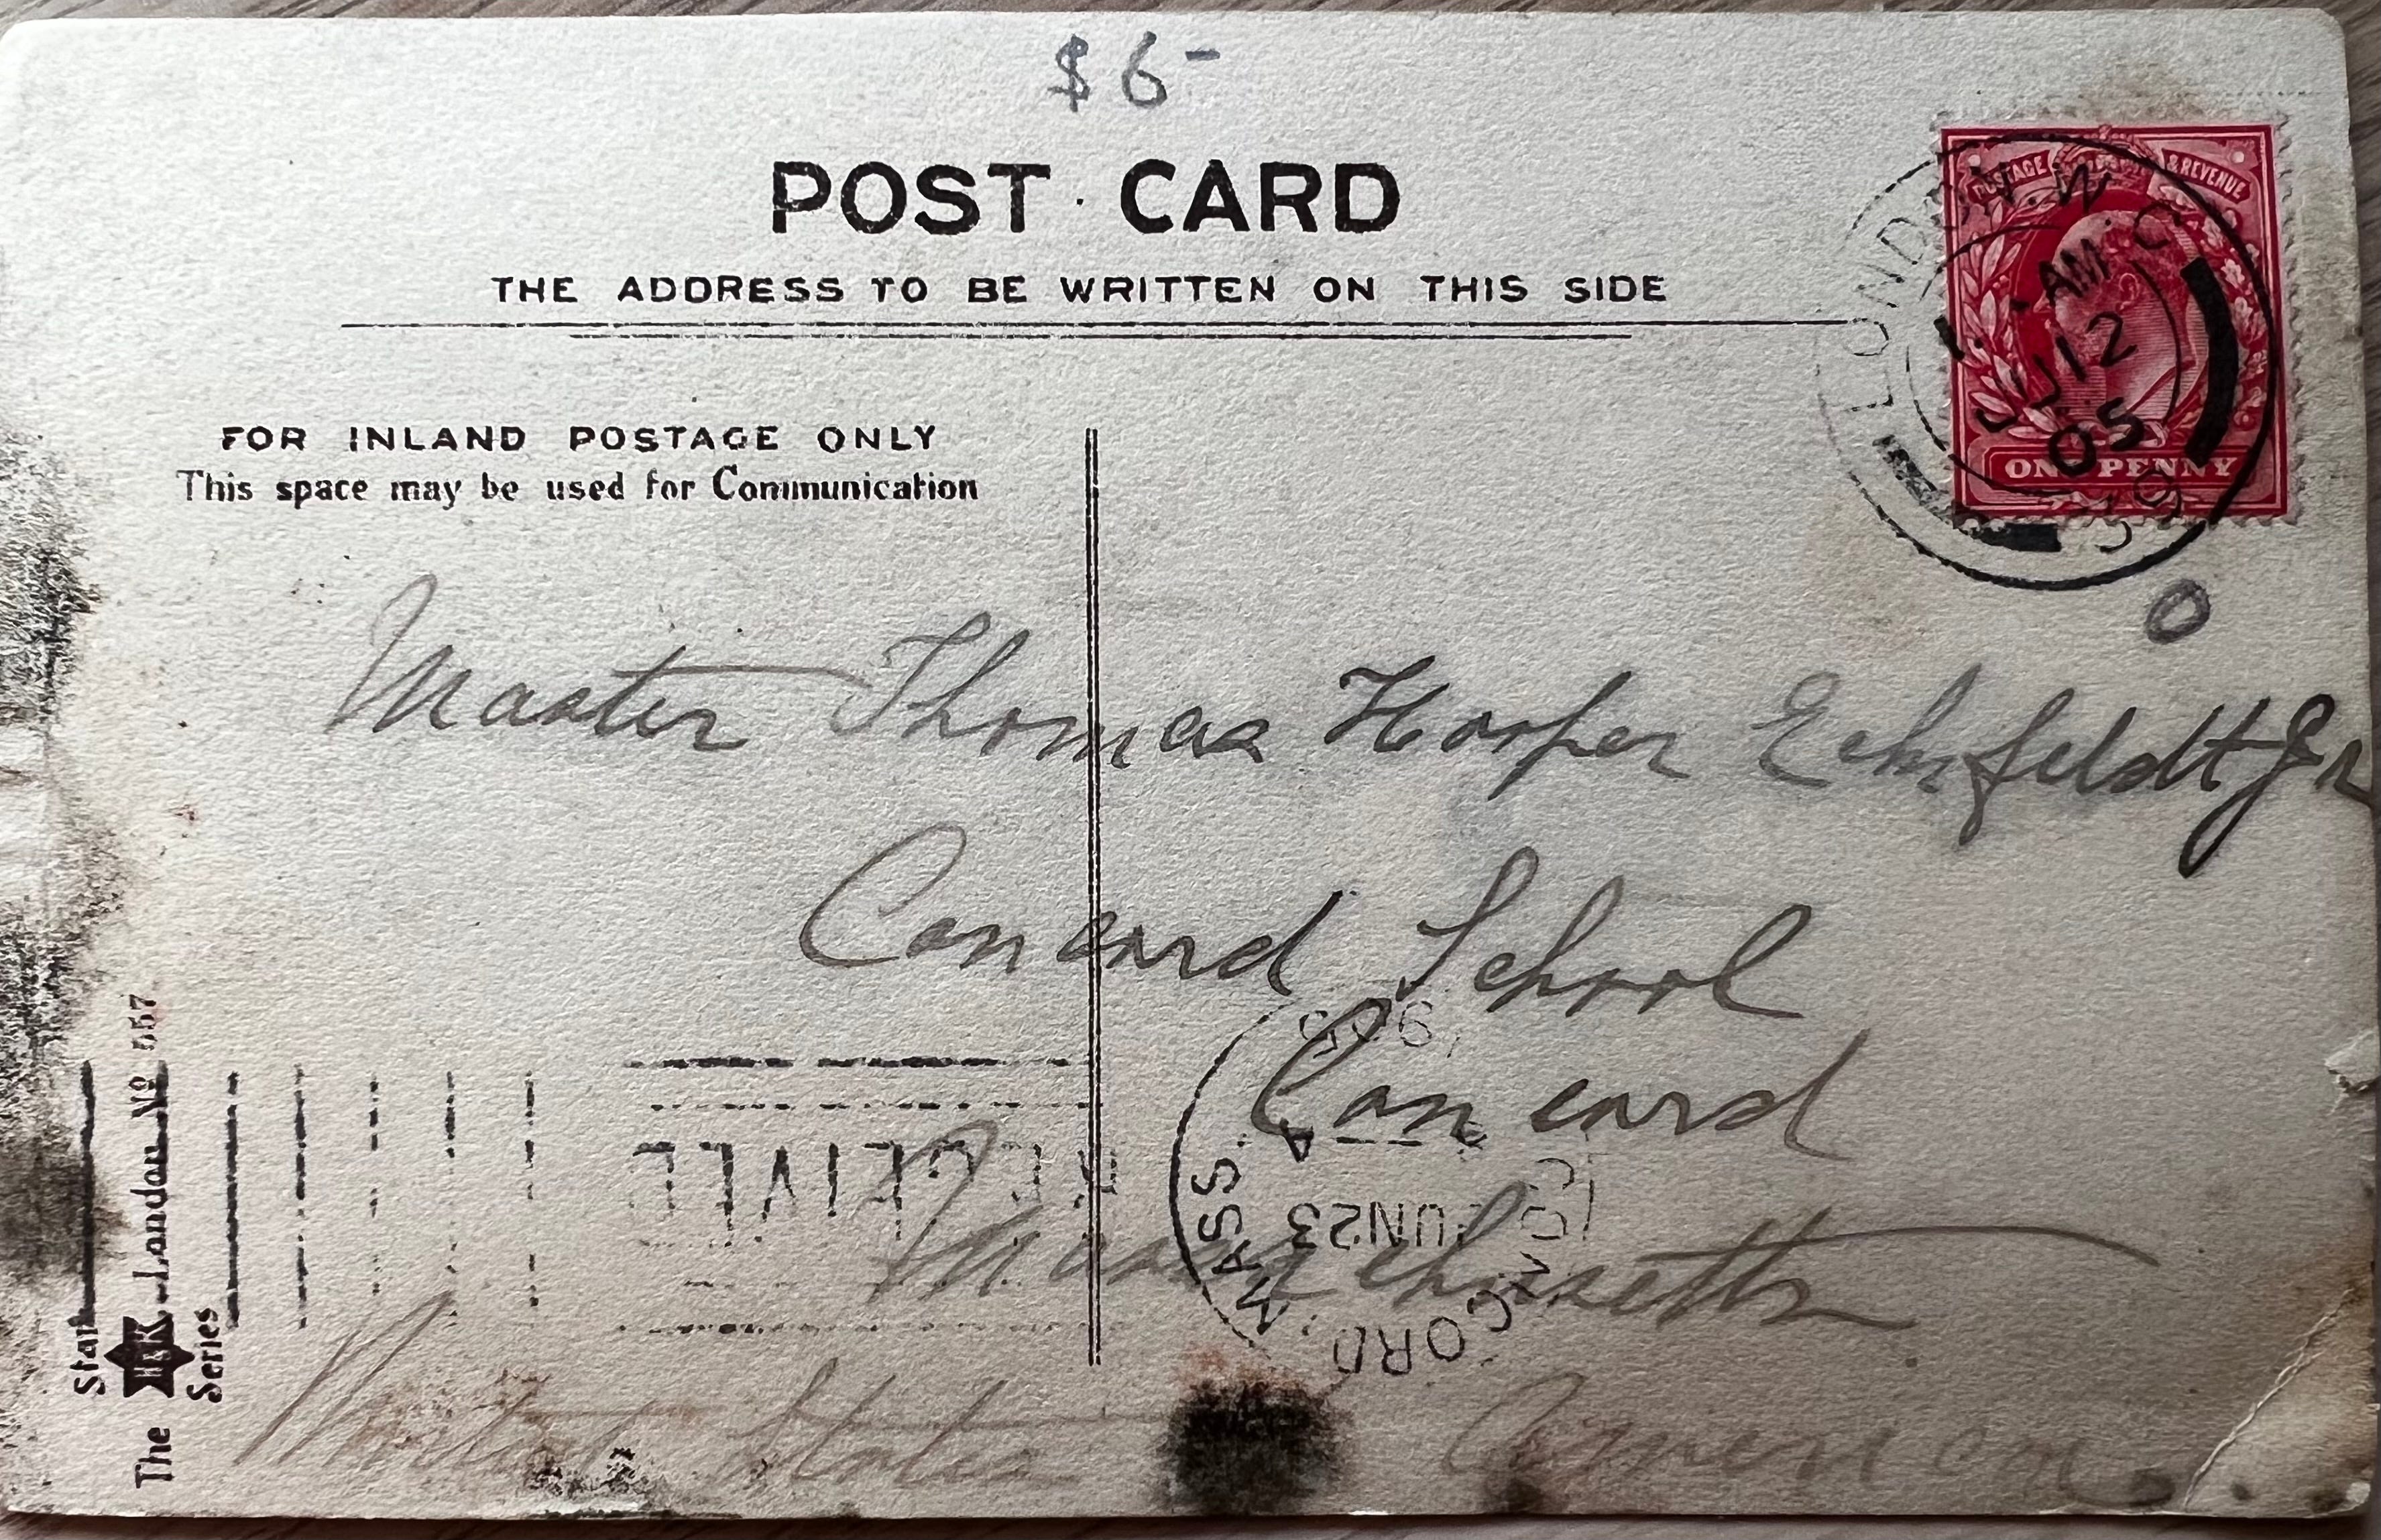 $6-
POST CARD
THE ADDRESS TO BE WRITTEN ON THIS SIDE
POSTAGE & REVENUE
ONE PENNY
LONDON. N.W.
AM
JU 12
05
39
FOR INLAND POSTAGE ONLY
This space may be used for Communication
Master Thomas Hooper Eckfeldt Jr
Concord School
Concord
Massachusetts
United States America
RECEIVED
CONCORD, MASS.
JUN 23
1905
The Star Series
H&K London No 557